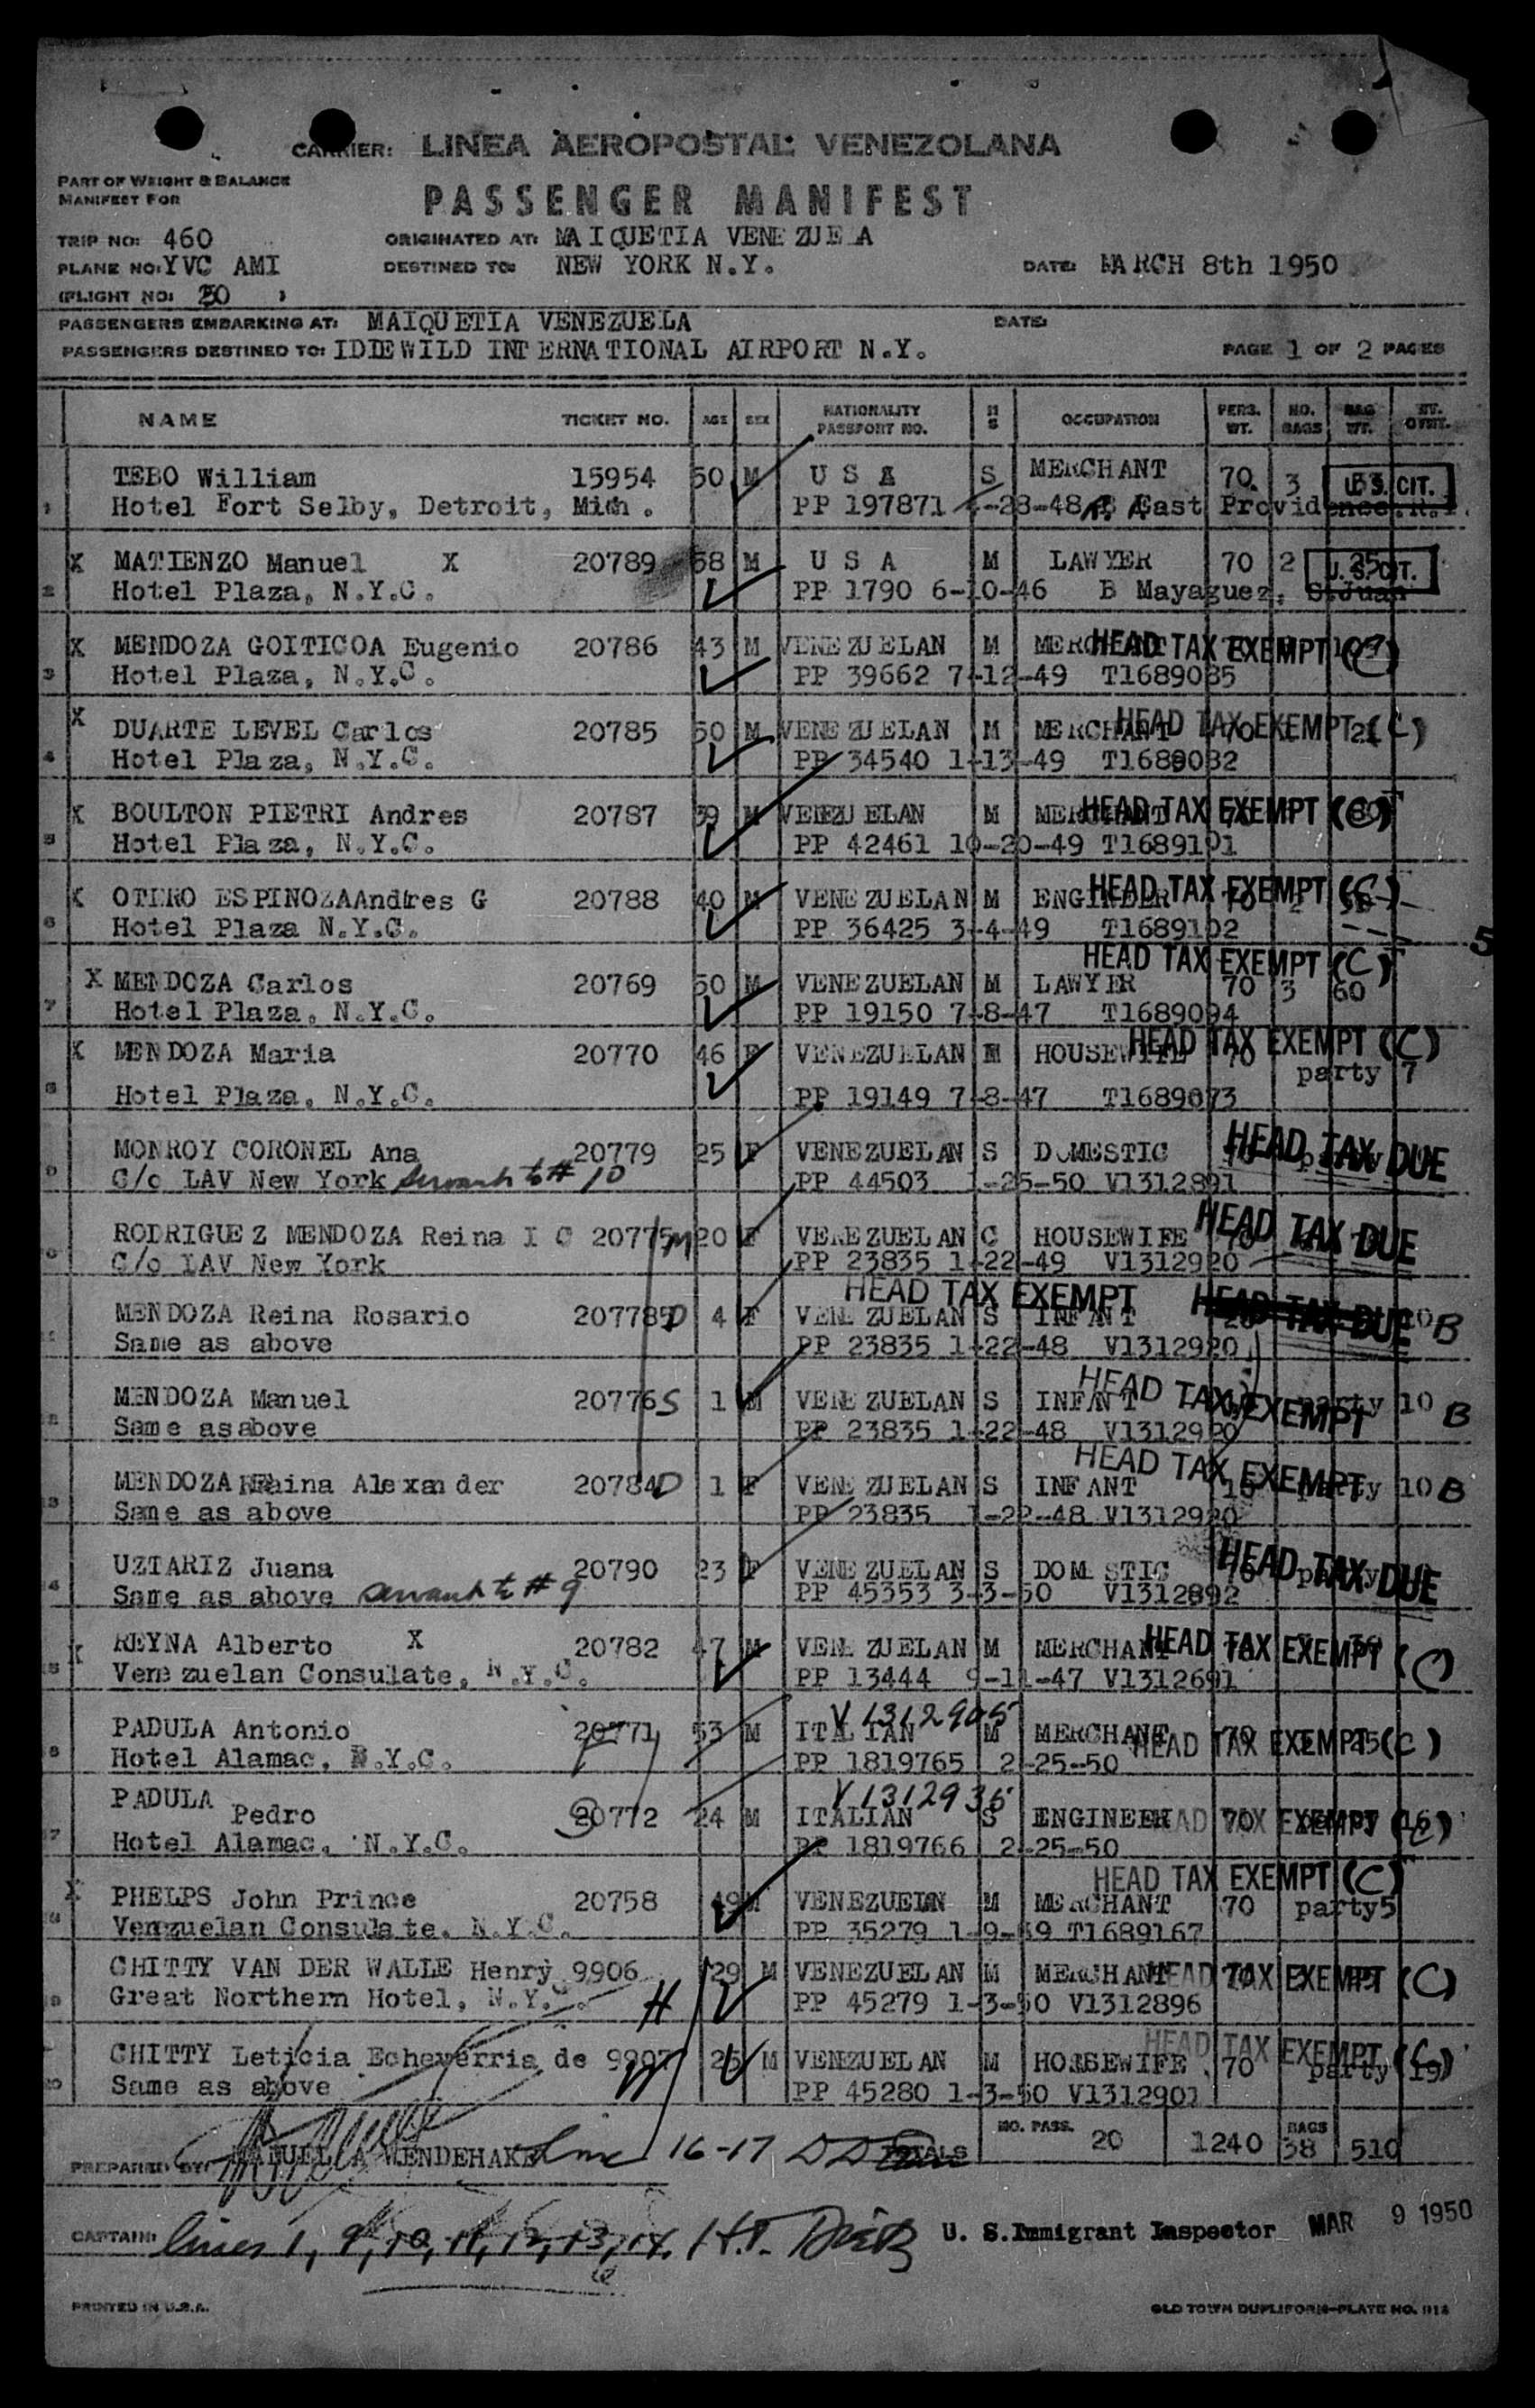 CARRIER: LINEA AEROPOSTAL VENEZOLANA
PART OF WEIGHT & BALANCE
MANIFEST FOR
PASSENGER MANIFEST
TRIP NO: 460 ORIGINATED AT: MAIQUETIA VENEZUELA
PLANE NO: YVC AMI DESTINED TO: NEW YORK N.Y. DATE: MARCH 8th 1950
(FLIGHT NO: )
PASSENGERS EMBARKING AT: MAIQUETIA VENEZUELA DATE:
PASSENGERS DESTINED TO: IDLEWILD INTERNATIONAL AIRPORT N.Y. PAGE 1 OF 2 PAGES
NAME TICKET NO. AGE SEX NATIONALITY PASSPORT NO. M S OCCUPATION PERS. WT. NO. BAGS BAG WT.
TEBO William 15954 50 M U S A S MERCHANT 70 3 U.S. CIT.
1 Hotel Fort Selby, Detroit, Mich. PP 197871 -28-48 East Providence.R.I.
X MATIENZO Manuel X 20789 58 M U S A M LAWYER 70 2 U.S. CIT.
2 Hotel Plaza, N.Y.C. PP 1790 6-10-46 B Mayaguez, S.Juan
X MENDOZA GOITICOA Eugenio 20786 43 M VENEZUELAN M MERCHANT HEAD TAX EXEMPT (C)
3 Hotel Plaza, N.Y.C. PP 39662 7-12-49 T1689085
X DUARTE LEVEL Carlos 20785 50 M VENEZUELAN M MERCHANT 70 HEAD TAX EXEMPT (C) 21
4 Hotel Plaza, N.Y.C. PP 34540 1-13-49 T1689082
X BOULTON PIETRI Andres 20787 39 M VENEZUELAN M MERCHANT HEAD TAX EXEMPT (C)
5 Hotel Plaza, N.Y.C. PP 42461 10-20-49 T1689101
X OTERO ESPINOZA Andres G 20788 40 M VENEZUELAN M ENGINEER 70 2 HEAD TAX EXEMPT (C)
6 Hotel Plaza N.Y.C. PP 36425 3-4-49 T1689102 5
HEAD TAX EXEMPT (C)
X MENDOZA Carlos 20769 50 M VENEZUELAN M LAWYER 70 3 60
7 Hotel Plaza, N.Y.C. PP 19150 7-8-47 T1689094
X MENDOZA Maria 20770 46 F VENEZUELAN M HOUSEWIFE 70 HEAD TAX EXEMPT (C) party 7
8 Hotel Plaza, N.Y.C. PP 19149 7-8-47 T1689073
MONROY CORONEL Ana 20779 25 F VENEZUELAN S DOMESTIC HEAD TAX DUE
9 C/o LAV New York servant to # 10 PP 44503 1-25-50 V1312891
RODRIGUEZ MENDOZA Reina I C 20775 M 20 F VENEZUELAN C HOUSEWIFE 70 HEAD TAX DUE
C/o LAV New York PP 23835 1-22-49 V1312920
HEAD TAX EXEMPT HEAD TAX DUE
MENDOZA Reina Rosario 20778 D 4 F VENEZUELAN S INFANT 10 B
Same as above PP 23835 1-22-48 V1312920
MENDOZA Manuel 20776 S 1 M VENEZUELAN S INFANT HEAD TAX EXEMPT party 10 B
Same as above PP 23835 1-22-48 V1312920
HEAD TAX EXEMPT
MENDOZA Reina Alexander 20784 D 1 F VENEZUELAN S INFANT party 10 B
Same as above PP 23835 1-22-48 V1312920
UZTARIZ Juana 20790 23 F VENEZUELAN S DOMESTIC HEAD TAX DUE
Same as above servant to # 9 PP 45353 3-3-50 V1312892
X REYNA Alberto X 20782 47 M VENEZUELAN M MERCHANT HEAD TAX EXEMPT (C)
Venezuelan Consulate, N.Y.C. PP 13444 9-11-47 V1312691
V 1312905
PADULA Antonio 20771 53 M ITALIAN M MERCHANT 70 HEAD TAX EXEMPT (C)
Hotel Alamac, N.Y.C. PP 1819765 2-25-50
V 1312936
PADULA
Pedro 20772 24 M ITALIAN S ENGINEER 70 HEAD TAX EXEMPT (C) 16
Hotel Alamac, N.Y.C. PP 1819766 2-25-50
HEAD TAX EXEMPT (C)
X PHELPS John Prince 20758 49 M VENEZUELAN M MERCHANT 70 party 5
Venezuelan Consulate, N.Y.C. PP 35279 1-9-49 T1689167
CHITTY VAN DER WALLE Henry 9906 29 M VENEZUELAN M MERCHANT 70 HEAD TAX EXEMPT (C)
Great Northern Hotel, N.Y.C. H PP 45279 1-3-50 V1312896
CHITTY Leticia Echeverria de 9907 W M VENEZUELAN M HOUSEWIFE 70 HEAD TAX EXEMPT (C) party 19
Same as above PP 45280 1-3-50 V1312901
PREPARED BY: MANUEL A MENDEHAKE line 16-17 TOTALS NO. PASS. 20 1240 BAGS 38 510
CAPTAIN: lines 1, 9, 10, 11, 12, 13, 14. U. S. Immigrant Inspector MAR 9 1950
PRINTED IN U.S.A. OLD TOWN DUPLIFORM-PLATE NO.